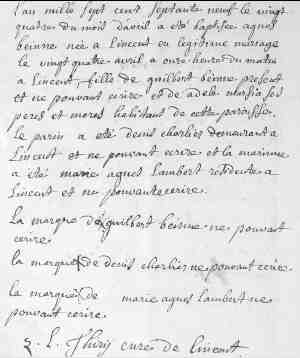 l'an mille sept cent septante neuf le vingt
quatre du mois d'avril a eté baptisee agnes
beinne née a Lincent en legitime mariage
le vingt quatre avril a onze heure du matin
a Lincent, fille de guilbert beinne present
et ne pouvant ecrire et de adele
peres et meres habitant de cette paroisse.
Le parin a eté denis charlier demeurant a
Lincent et ne pouvant ecrire et la marinne
a eté marie agnes Lambert residente a
Lincent et ne pouvante ecrire.
La marque de guilbert beinne ne pouvant
ecrire.
la marque de denis charlier ne pouvant ecrire.
la marque de marie agnes lambert ne
pouvant ecrire.
L. curé de lincent